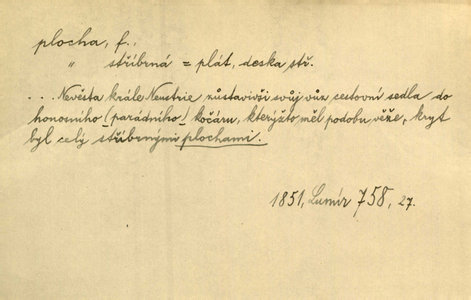 plocha, f.,
" stříbrná = plát, deska stř.
... Nevěsta krále Neustrie zůstavivši svůj vůz cestovní sedla do
honosního (parádního) kočáru, kterýžto měl podobu věže, kryt
byl celý stříbrnými plochami.
1851, Lumír 758, 27.